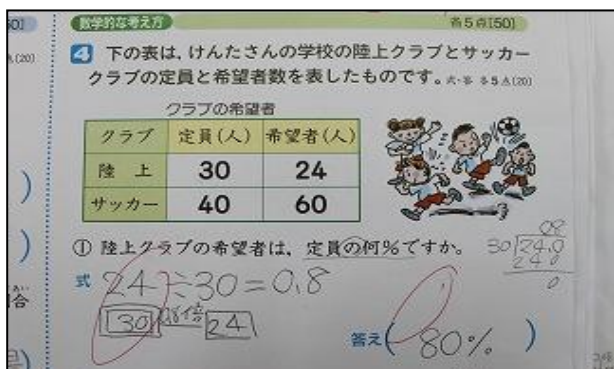 数学的な考え方 各5点[50]
4 下の表は、けんたさんの学校の陸上クラブとサッカー
クラブの定員と希望者数を表したものです。式・答 各5点[20]
クラブの希望者
クラブ 定員(人) 希望者(人)
陸 上 30 24
サッカー 40 60
① 陸上クラブの希望者は、定員の何%ですか。
式 24÷30=0.8
30 0.8倍 24
答え( 80% )
08
30 24.0
24 0
0